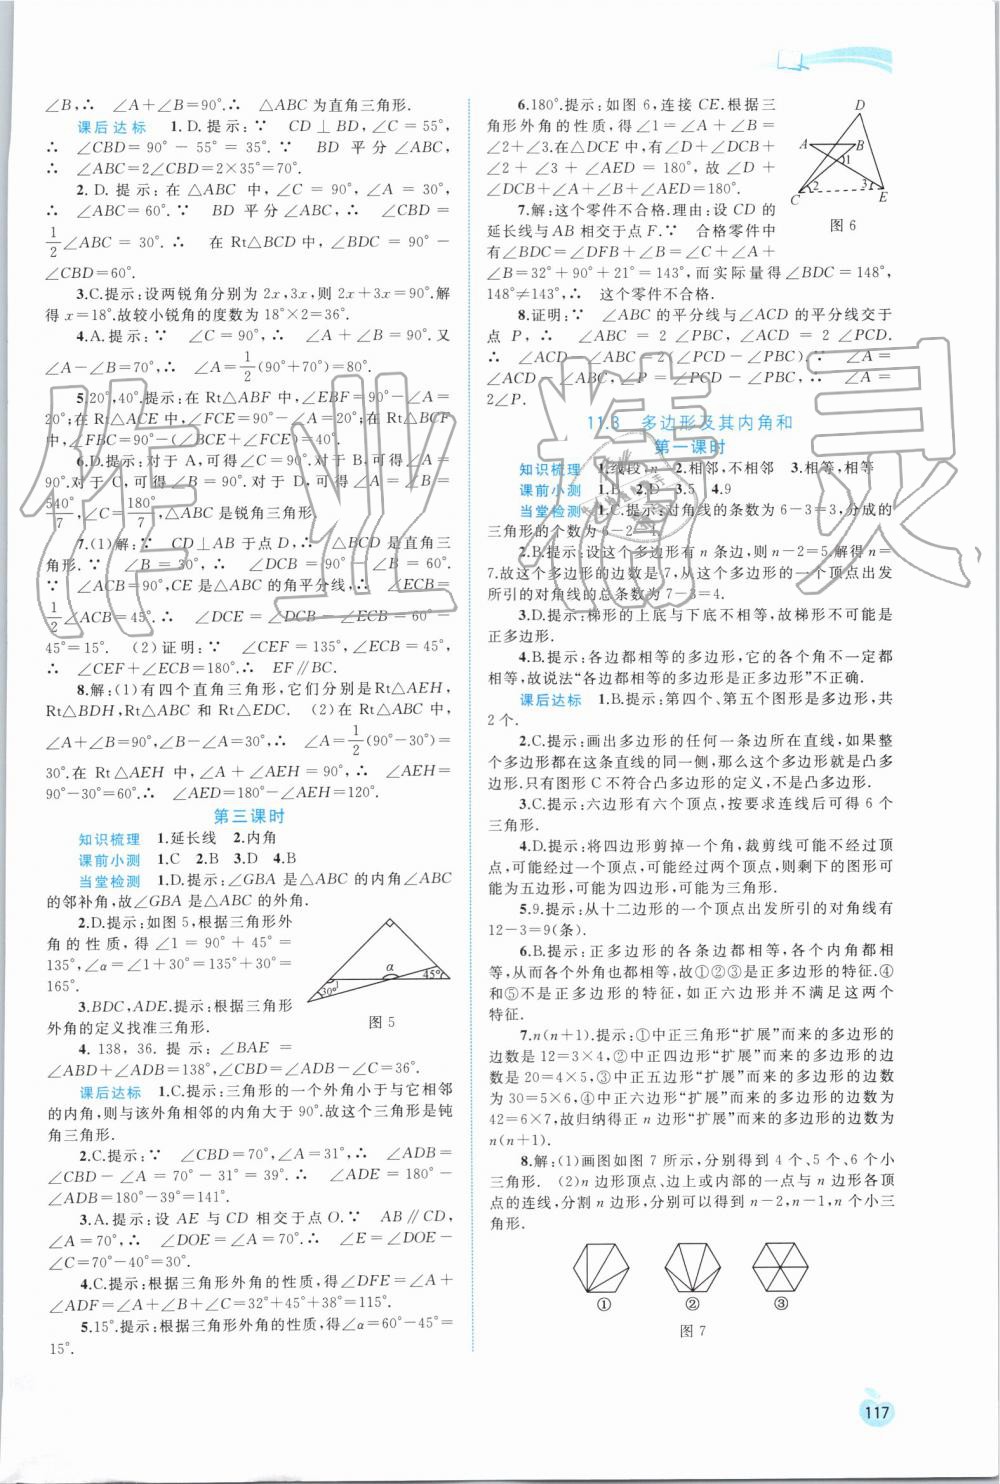 ∠B,∴ ∠A+∠B=90°.∴ △ABC为直角三角形.
课后达标 1.D.提示:∵ CD⊥BD,∠C=55°,
∴ ∠CBD=90°-55°=35°.∵ BD平分∠ABC,
∴ ∠ABC=2∠CBD=2×35°=70°.
2.D.提示:在△ABC中,∠C=90°,∠A=30°,
∴ ∠ABC=60°.∵ BD平分∠ABC,∴ ∠CBD=
1/2∠ABC=30°.∴ 在Rt△BCD中,∠BDC=90°-
∠CBD=60°.
3.C.提示:设两锐角分别为2x,3x,则2x+3x=90°.解
得x=18°.故较小锐角的度数为18°×2=36°.
4.A.提示:∵ ∠C=90°,∴ ∠A+∠B=90°.又
∠A-∠B=70°,∴ ∠A=1/2(90°+70°)=80°.
5.20°,40°.提示:在Rt△ABF中,∠FBC=90°-∠A-
20°;在Rt△ACE中,∠FCE=90°-∠A=20°;在Rt△BCF
中,∠FBC=90°-(∠BCE+∠FCE)=40°.
6.D.提示:对于A,可得∠C=90°.对于B,可得∠C=
90°.对于C,可得∠B=90°.对于D,可得∠A=180°/7,∠B=
540°/7,∠C=180°/7,△ABC是锐角三角形.
7.(1)解:∵ CD⊥AB于点D,∴ △BCD是直角三
角形.∵ ∠B=30°,∴ ∠DCB=90°-∠B=60°.
∵ ∠ACB=90°,CE是△ABC的角平分线,∴ ∠ECB=
1/2∠ACB=45°.∴ ∠DCE=∠DCB-∠ECB=60°-
45°=15°. (2)证明:∵ ∠CEF=135°,∠ECB=45°,
∴ ∠CEF+∠ECB=180°.∴ EF∥BC.
8.解:(1)有四个直角三角形,它们分别是Rt△AEH,
Rt△BDH,Rt△ABC和Rt△EDC. (2)在Rt△ABC中,
∠A+∠B=90°,∠B-∠A=30°,∴ ∠A=1/2(90°-30°)=
30°.在Rt△AEH中,∠A+∠AEH=90°,∴ ∠AEH=
90°-30°=60°.∴ ∠AED=180°-∠AEH=120°.
第三课时
知识梳理 1.延长线 2.内角
课前小测 1.C 2.B 3.D 4.B
当堂检测 1.D.提示:∠GBA是△ABC的内角∠ABC
的邻补角,故∠GBA是△ABC的外角.
2.D.提示:如图5,根据三角形外
角的性质,得∠1=90°+45°=
135°,∠α=∠1+30°=135°+30°=
165°.
α
1
45°
30°
图5
3.BDC,ADE.提示:根据三角形
外角的定义找准三角形.
4.138,36.提示:∠BAE=
∠ABD+∠ADB=138°,∠CBD=∠BAE-∠C=36°.
课后达标 1.C.提示:三角形的一个外角小于与它相邻
的内角,则与该外角相邻的内角大于90°.故这个三角形是钝
角三角形.
2.C.提示:∵ ∠CBD=70°,∠A=31°,∴ ∠ADB=
∠CBD-∠A=70°-31°=39°.∴ ∠ADE=180°-
∠ADB=180°-39°=141°.
3.A.提示:设AE与CD相交于点O.∵ AB∥CD,
∠A=70°,∴ ∠DOE=∠A=70°.∴ ∠E=∠DOE-
∠C=70°-40°=30°.
4.C.提示:根据三角形外角的性质,得∠DFE=∠A+
∠ADF=∠A+∠B+∠C=32°+45°+38°=115°.
5.15°.提示:根据三角形外角的性质,得∠α=60°-45°=
15°.
6.180°.提示:如图6,连接CE.根据三
角形外角的性质,得∠1=∠A+∠B=
∠2+∠3.在△DCE中,有∠D+∠DCB+
∠2+∠3+∠AED=180°,故∠D+
∠DCB+∠A+∠B+∠AED=180°.
D
A
B
1
2
3
C
E
图6
7.解:这个零件不合格.理由:设CD的
延长线与AB相交于点F.∵ 合格零件中
有∠BDC=∠DFB+∠B=∠C+∠A+
∠B=32°+90°+21°=143°,而实际量得∠BDC=148°,
148°≠143°,∴ 这个零件不合格.
8.证明:∵ ∠ABC的平分线与∠ACD的平分线交于
点P,∴ ∠ABC=2∠PBC,∠ACD=2∠PCD.
∴ ∠ACD-∠ABC=2(∠PCD-∠PBC).∵ ∠A=
∠ACD-∠ABC,∠P=∠PCD-∠PBC,∴ ∠A=
2∠P.
11.3 多边形及其内角和
第一课时
知识梳理 1.线段,n 2.相邻,不相邻 3.相等,相等
课前小测 1.B 2.D 3.5 4.9
当堂检测 1.C.提示:对角线的条数为6-3=3,分成的
三角形的个数为6-2=4.
2.B.提示:设这个多边形有n条边,则n-2=5.解得n=
7.故这个多边形的边数是7,从这个多边形的一个顶点出发
所引的对角线的总条数为7-3=4.
3.D.提示:梯形的上底与下底不相等,故梯形不可能是
正多边形.
4.B.提示:各边都相等的多边形,它的各个角不一定都
相等,故说法“各边都相等的多边形是正多边形”不正确.
课后达标 1.B.提示:第四个、第五个图形是多边形,共
2个.
2.C.提示:画出多边形的任何一条边所在直线,如果整
个多边形都在这条直线的同一侧,那么这个多边形就是凸多
边形.只有图形C不符合凸多边形的定义,不是凸多边形.
3.C.提示:六边形有六个顶点,按要求连线后可得6个
三角形.
4.D.提示:将四边形剪掉一个角,裁剪线可能不经过顶
点,可能经过一个顶点,可能经过两个顶点,则剩下的图形可
能为五边形,可能为四边形,可能为三角形.
5.9.提示:从十二边形的一个顶点出发所引的对角线有
12-3=9(条).
6.B.提示:正多边形的各条边都相等,各个内角都相
等,从而各个外角也都相等,故①②③是正多边形的特征.④
和⑤不是正多边形的特征,如正六边形并不满足这两个
特征.
7.n(n+1).提示:①中正三角形“扩展”而来的多边形的
边数是12=3×4,②中正四边形“扩展”而来的多边形的边
数是20=4×5,③中正五边形“扩展”而来的多边形的边数
为30=5×6,④中正六边形“扩展”而来的多边形的边数为
42=6×7,故归纳得正n边形“扩展”而来的多边形的边数为
n(n+1).
8.解:(1)画图如图7所示,分别得到4个、5个、6个小
三角形. (2)n边形顶点、边上或内部的一点与n边形各顶
点的连线,分割n边形,分别可以得到n-2,n-1,n个小三
角形.
① ② ③
图7
117
作业精灵